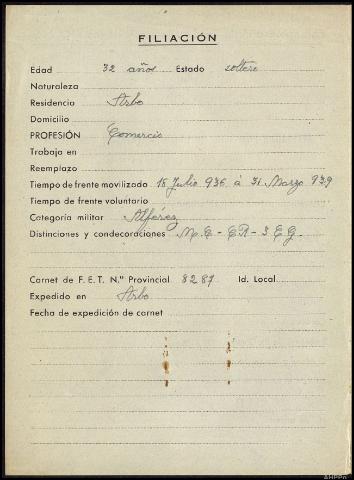 FILIACIÓN
Edad 32 años Estado soltero
Naturaleza
Residencia Arbo
Domicilio
PROFESIÓN Comercio
Trabaja en
Reemplazo
Tiempo de frente movilizado 18 Julio 936 á 31 Marzo 939
Tiempo de frente voluntario
Categoría militar Alférez
Distinciones y condecoraciones M. C - CR - 3 E G.
Carnet de F. E. T. N.º Provincial 8287 Id. Local
Expedido en Arbo
Fecha de expedición de carnet
AHPPo